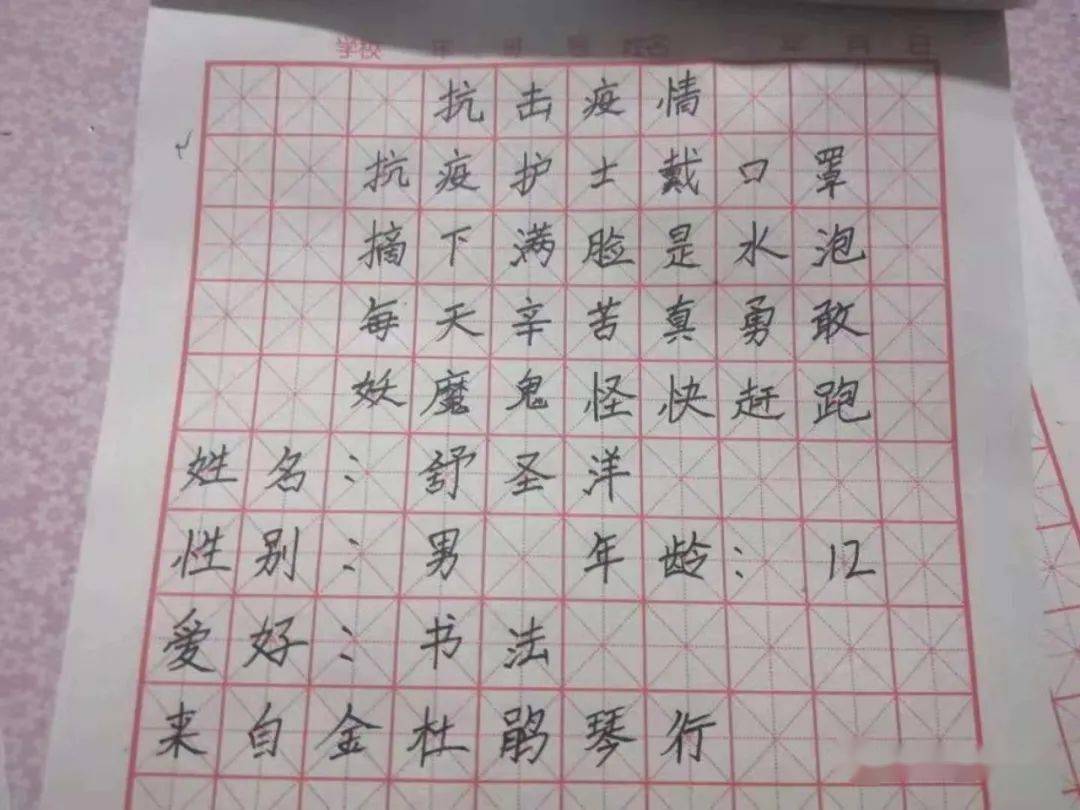 学校
抗击疫情
抗疫护士戴口罩
摘下满脸是水泡
每天辛苦真勇敢
妖魔鬼怪快赶跑
姓名：舒圣洋
性别：男 年龄：12
爱好：书法
来自金杜鹃琴行